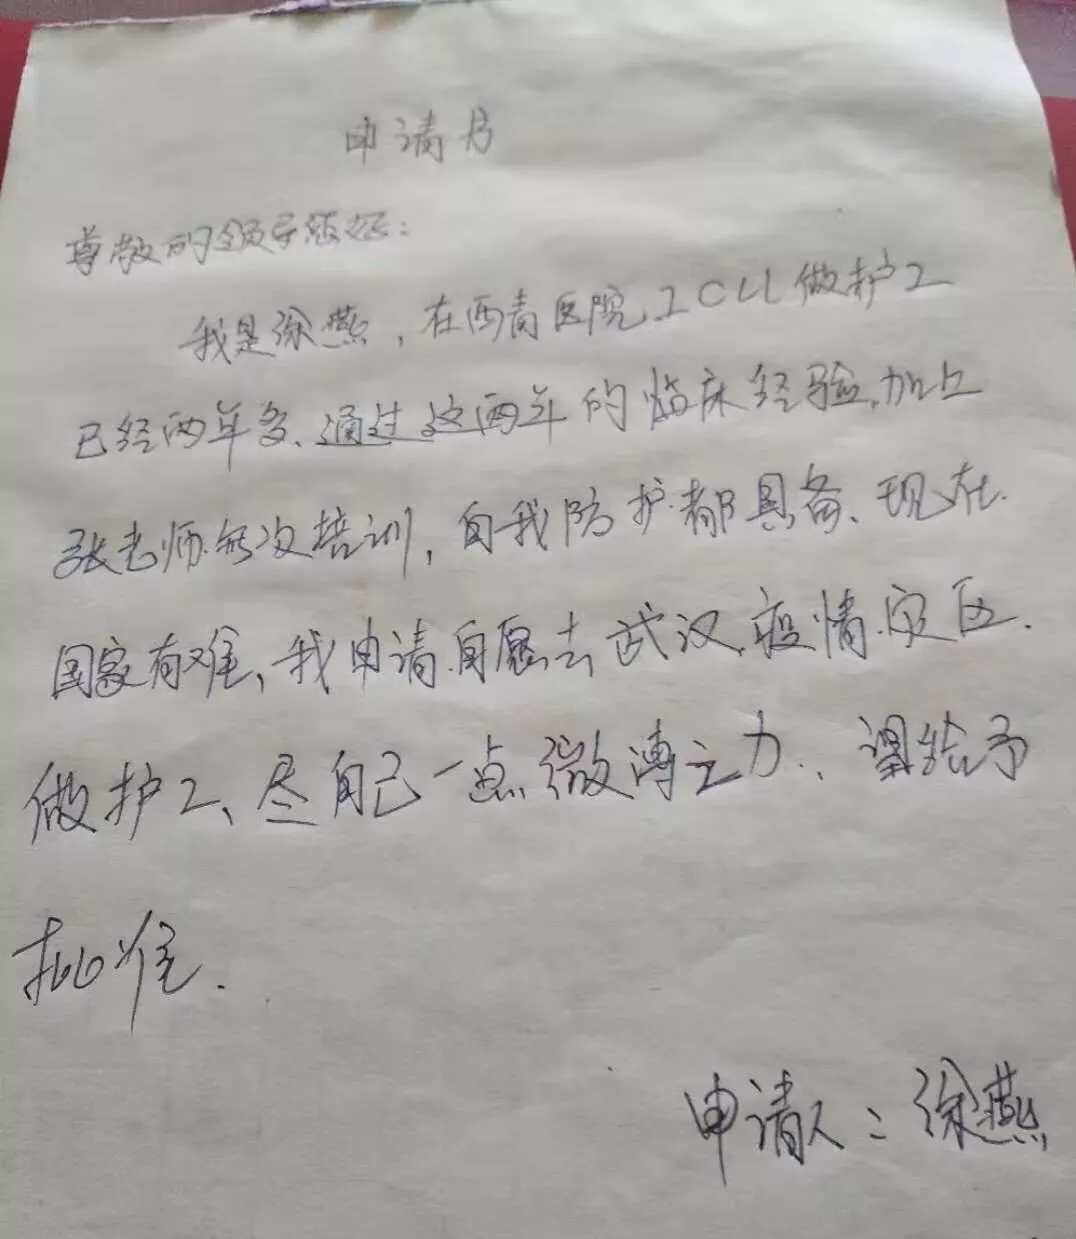 申请书
尊敬的领导您好：
我是徐燕，在西青医院ICU做护工
已经两年多、通过这两年的临床经验，加上
张老师每次培训，自我防护都具备、现在
国家有难、我申请自愿去武汉疫情灾区.
做护工、尽自己一点微薄之力.、望给予
批准.
申请人：徐燕